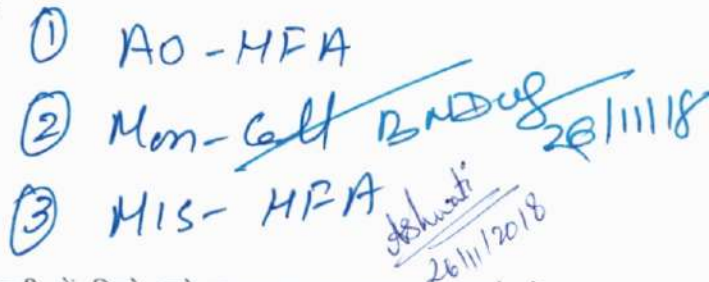 ① AO-HFA
② Mon-Cell
26/11/18
③ MIS- HFA
Ashwati
26/11/2018